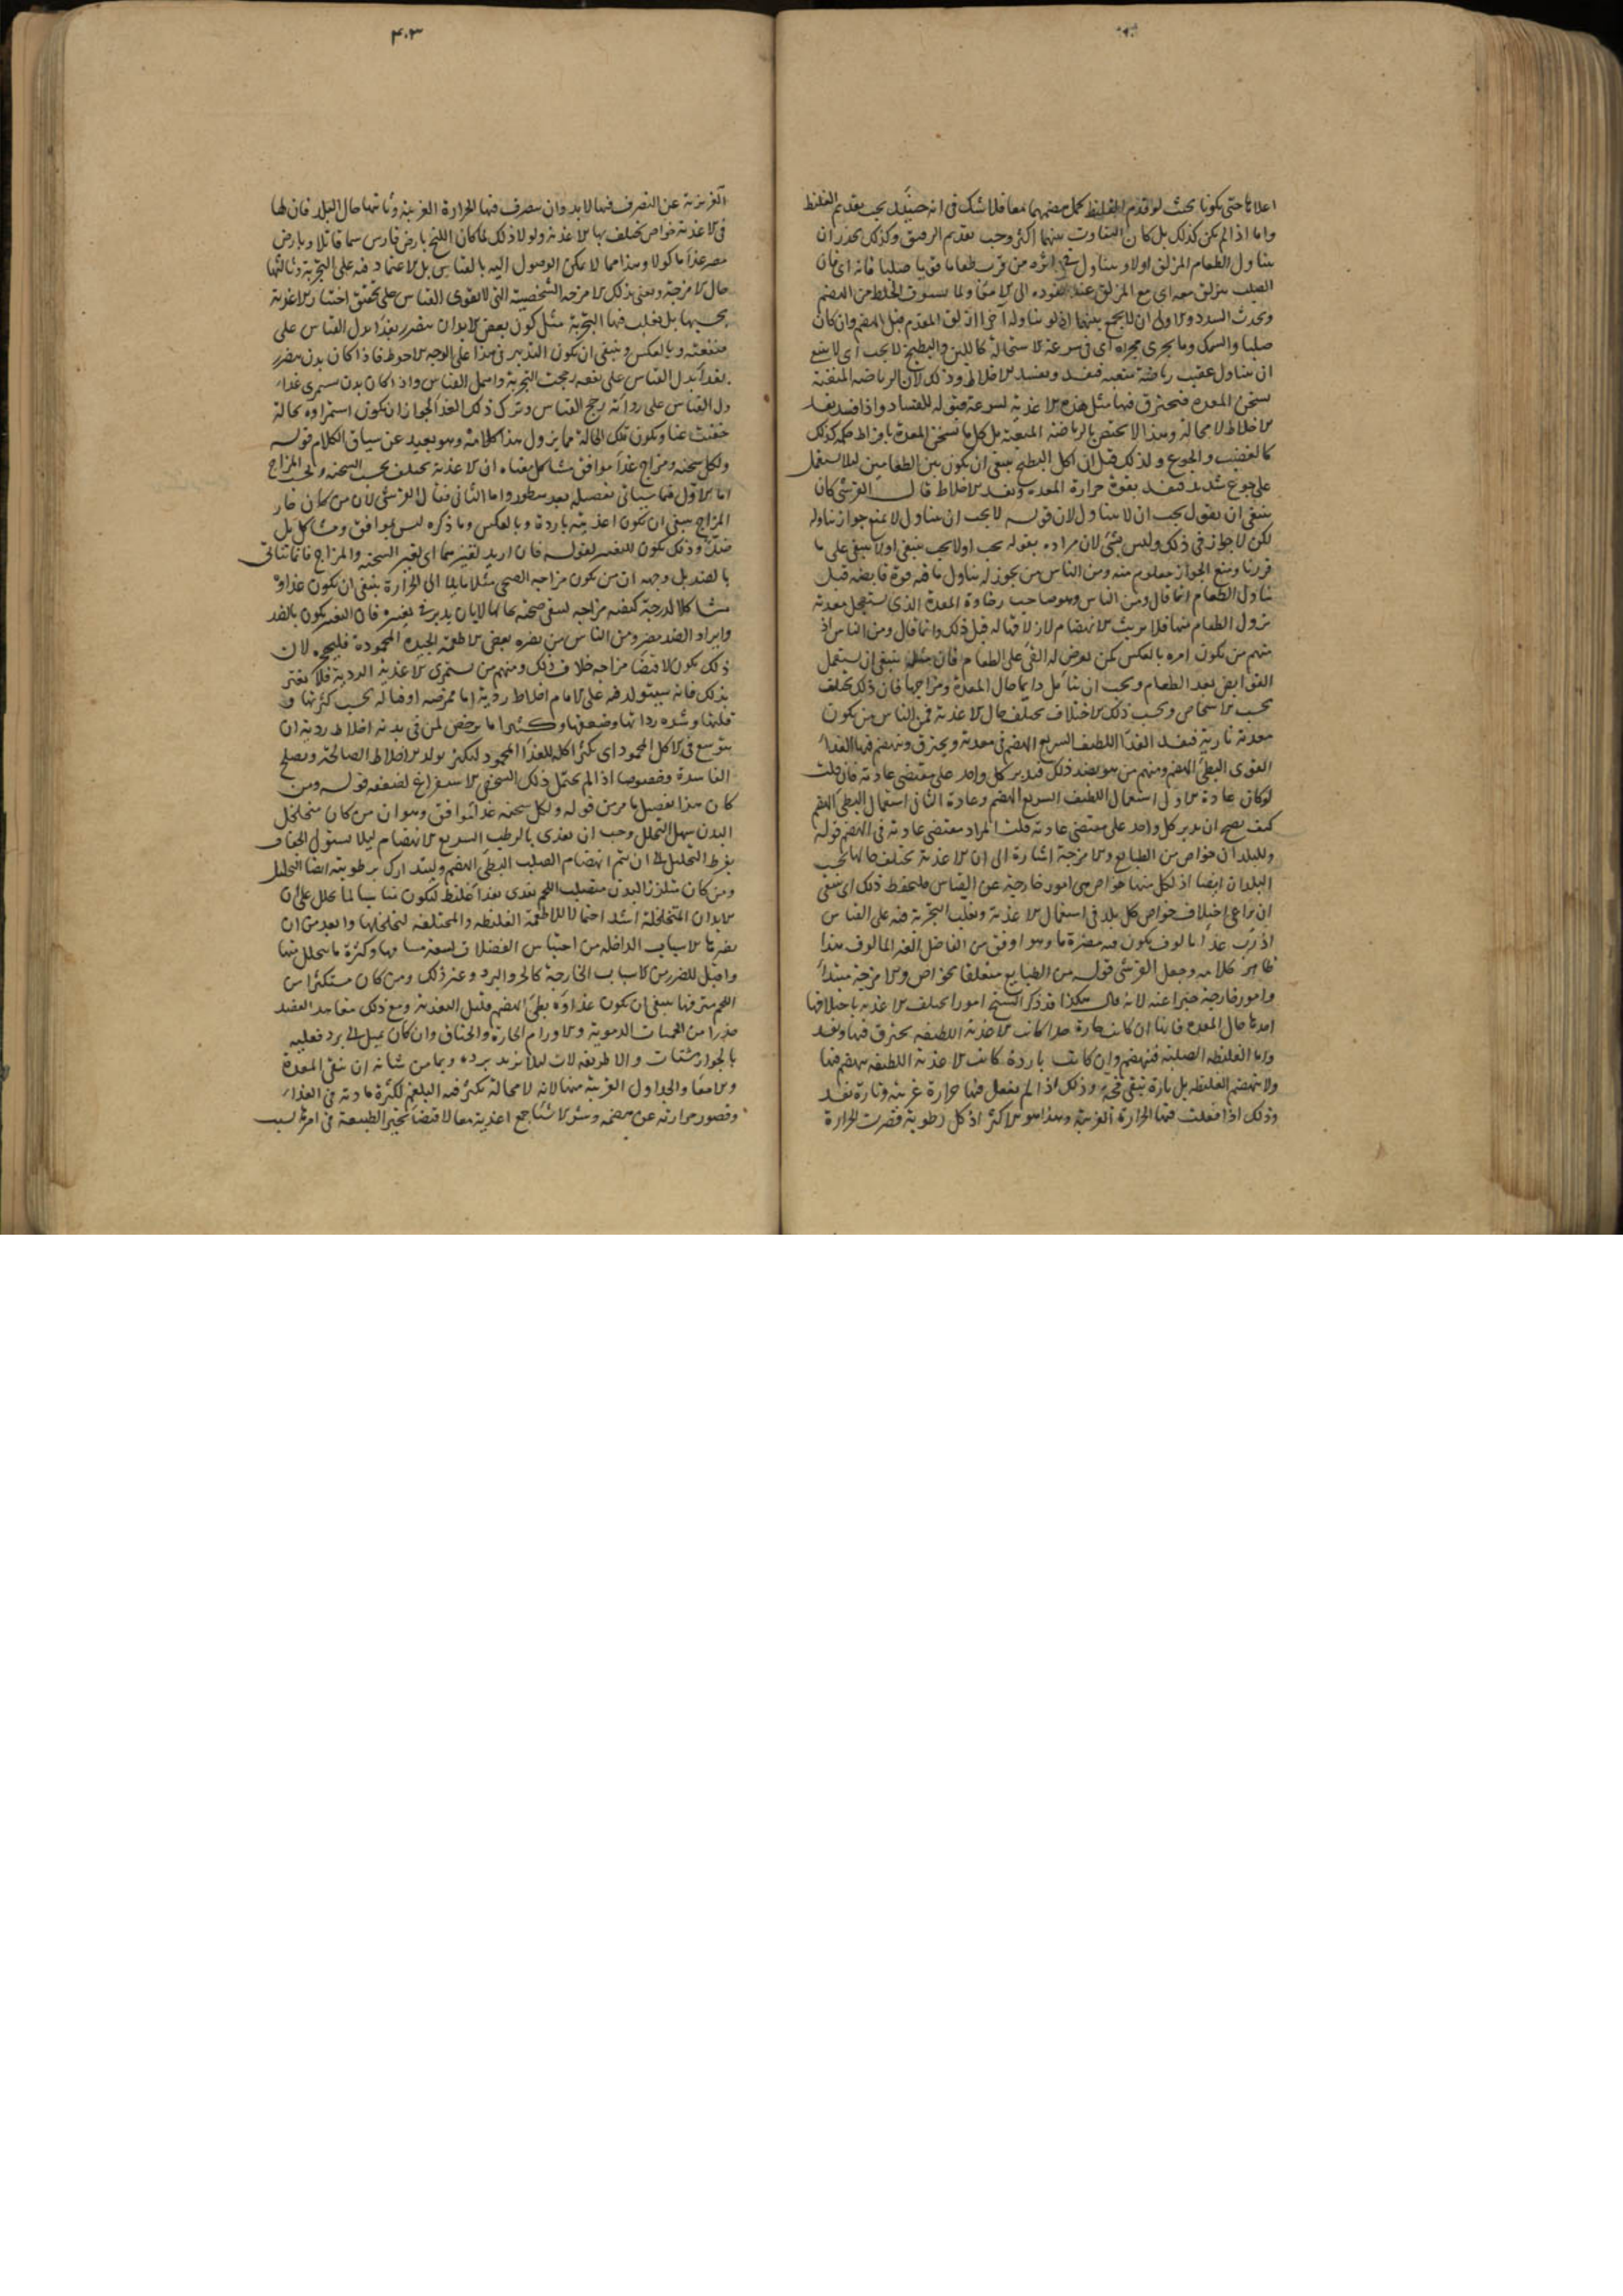 اعلاها حتى يكونا بحيث لو قدم الغليظ كمل هضمهما معا فلا شك فى انه حينئذ يجب تقديم الغليظ
واما اذا لم يكن كذلك بل كان التفاوت بينهما اكثر وجب تقديم الرقيق وكذلك يحذر ان
يتناول الطعام المزلق اولا ويتناول فى اثره من قرب طعاما قويا صلبا فانه اى فان
الصلب ينزلق معه اى مع المزلق عند نفوذه الى الامعا ولما يستوف الحظ من الهضم
ويحدث السدد والاولى ان لا يجمع بينهما اذ لو تناوله آخرا انزلق المقدم قبل الهضم وان كان
صلبا والسمك وما يجرى مجراه اى فى سرعة الاستحالة كاللبن والبطيخ لا يجب اى لا ينبغ
ان يتناول عقيب رياضة متعبة فيفسد ويفسد الاخلاط وذلك لان الرياضة المتعبة
يسخن المعدة فيحترق فيها مثل هذه الاغذية لسرعة قبوله للفساد واذا فسد يفسد
الاخلاط لا محالة وهذا لا يختص بالرياضة المتعبة بل كل ما يسخن المعدة بافراط حكمه كذلك
كالغضب والجوع ولذلك قيل ان اكل البطيخ ينبغى ان يكون بين الطعامين ليلا يستعمل
على جوع شديد فيفسد بقوة حرارة المعدة ويفسد الاخلاط قال القرشى كان
ينبغى ان يقول يجب ان لا يتناول لان قوله لا يجب ان يتناول لا يمنع جواز تناوله
لكن لا جواز فى ذلك وليس بشئ لان مراده بقوله يجب او لا يجب ينبغى او لا ينبغى على ما
قررنا ومنع الجواز معلوم منه ومن الناس من يجوز له تناول ما فيه قوة قابضة قبل
تناول الطعام انما قال ومن الناس وهو صاحب رخاوة المعدة الذى يستعجل معدته
نزول الطعام منها فلا يريث للانهضام لانه لا قباله قبل ذلك وانما قال ومن الناس اذ
منهم من يكون امره بالعكس كمن يعرض له القئ على الطعام فان مثله ينبغى ان يستعمل
القوابض بعد الطعام ويجب ان يتأمل دايما حال المعدة ومزاجها فان ذلك يختلف
بحسب الاشخاص وبحسب ذلك الاختلاف يختلف حال الاغذية فمن الناس من يكون
معدته نارية فيفسد الغذا اللطيف السريع الهضم فى معدته ويحترق وينهضم فيها الغذاء
القوى البطئ الهضم ومنهم من هو بضد ذلك فيدبر كل واحد على مقتضى عادته فان قلت
لو كان عادة الاول استعمال اللطيف السريع الهضم وعادة الثانى استعمال البطئ الهضم
كيف يصح ان يدبر كل واحد على مقتضى عادته قلت المراد مقتضى عادته فى الهضم قوله
وللبلدان خواص من الطبايع والامزجة اشارة الى ان الاغذية يختلف حالها بحسب
البلدان ايضا اذ لكل منها خواص هى امور خارجية عن القياس فليحفظ ذلك اى ينبغى
ان يراعى اختلاف خواص كل بلد فى استعمال الاغذية ويغلب التجربة فيه على القياس
اذ رب غذا مالوف يكون فيه مضرة ما وهو اوفق من الفاضل الغير المالوف هذا
ظاهر كلامه وجعل القرشى قوله من الطبايع متعلقا بخواص والامزجة مبتدأ
وامور خارجية خبرا عنه لانه قال هكذا قد ذكر الشيخ امورا يختلف الاغذية باختلافها
احدها حال المعدة فانها ان كانت حارة جدا كانت الاغذية اللطيفة يحترق فيها ويفسد
واما الغليظة الصلبة فينهضم وان كانت باردة كانت الاغذية اللطيفة ينهضم فيها
ولا ينهضم الغليظة بل تارة تبقى فجة وذلك اذا لم يفعل فيها حرارة غريبة وتارة تفسد
وذلك اذا فعلت فيها الحرارة الغريبة وهذا هو الاكثر اذ كل رطوبة قصرت الحرارة
۴۰۳
الغريزية عن التصرف فيها لا بد وان يتصرف فيها الحرارة الغريبة وثانيها حال البلد فان لها
فى الاغذية خواص يختلف بها الاغذية ولولا ذلك لما كان اللبخ بارض فارس سما قاتلا وبارض
مصر غذاء ماكولا وهذا مما لا يمكن الوصول اليه بالقياس بل الاعتماد فيه على التجربة وثالثها
حال الامزجة ونعنى بذلك الامزجة الشخصية التى لا يقوى القياس على تحقق اختيار الاغذية
بحسبها بل يغلب فيها التجربة مثل كون بعض الابدان يتضرر بغذاء يدل القياس على
منفعته وبالعكس وينبغى ان يكون التدبير فى هذا على الوجه الاحوط فاذا كان بدن يتضرر
بغذاء يدل القياس على نفعه رجحت التجربة واهمل القياس واذا كان بدن يستمرئ غذاء
دل القياس على رداته رجح القياس وترك ذلك الغذا لجواز ان يكون استمراوه بحالة
خفيت عنا ويكون تلك الحالة مما يزول هذا كلامه وهو بعيد عن سياق الكلام قوله
ولكل سحنة ومزاج غذاء موافق مشاكل معناه ان الاغذية يختلف بحسب السحنة وبحسب المزاج
اما الاول فما سيأتى تفصيله بعد سطور واما الثانى فقال القرشى لان من كان حار
المزاج ينبغى ان يكون اغذيته باردة وبالعكس وما ذكره ليس بموافق ومشاكل بل
ضد وذلك يكون للتغيير لقوله فان اريد تغييرهما اى تغير السحنة والمزاج فانما يتاتى
بالضد بل وجهه ان من يكون مزاجه الصحى مثلا مايلا الى الحرارة ينبغى ان يكون غذاؤه
مشاكلا لدرجة كيفية مزاجه لتبقى صحته بحالها لا بان يدبر فى تغييره فان التغيير يكون بالضد
وايراد الضد مضر ومن الناس من يضره بعض الاطعمة الجيدة المحمودة فليهجره لان
ذلك يكون لاقتضاء مزاجه خلاف ذلك ومنهم من يستمرئ الاغذية الردية فلا يغتر
بذلك فانه سيتولد فيه على الايام اخلاط ردية اما ممرضة او قتالة بحسب كثرتها و
قلتها وشدة رداتها وضعفها وكثيرا ما يرخص لمن فى بدنه اخلاط ردية ان
يتوسع فى الاكل المحمود اى يكثر اكله للغذا المحمود ليكثر تولد الاخلاط الصالحة ويصلح
الفاسدة وخصوصا اذا لم يحتمل ذلك الشخص الاستفراغ لضعفه قوله ومن
كان هذا تفصيل ما مر من قوله ولكل سحنة غذاء موافق وهو ان من كان متخلخل
البدن سهل التحلل وجب ان يغذى بالرطب السريع الانهضام ليلا يستولى الجفاف
بفرط التحليل الى ان يتم انهضام الصلب البطئ الهضم وليتدارك برطوبته ايضا التحليل
ومن كان متلزز البدن متصلب اللحم يغذى بغذاء غليظ ليكون مناسبا لما يتحلل على ان
الابدان المتخلخلة اشد احتمالا للاطعمة الغليظة والمختلفة لتخلخلها وابعد من ان
يضرها الاسباب الداخلة من احتباس الفضلات لسعة مسامها وكثرة ما يتحلل منها
واقبل للضرر من الاسباب الخارجة كالحر والبرد وغير ذلك ومن كان مستكثرا من
اللحم مترفها ينبغى ان يكون غذاؤه بطئ الهضم قليل التغذية ومع ذلك متعاهد الفصد
حذرا من الحميات الدموية والاورام الحارة والخناق وان كان يميل الى برد فعليه
بالجوارشنات والاطريفلات ليلا يزيد برده وبما من شانه ان ينقى المعدة
والامعا والجداول القريبة منها لانه لا محالة يكثر فيه البلغم لكثرة مادته فى الغذاء
وقصور حرارته عن هضمه وشر الاشيا جمع اغذية معا لاقتضا تحير الطبيعة فى امرها بسبب